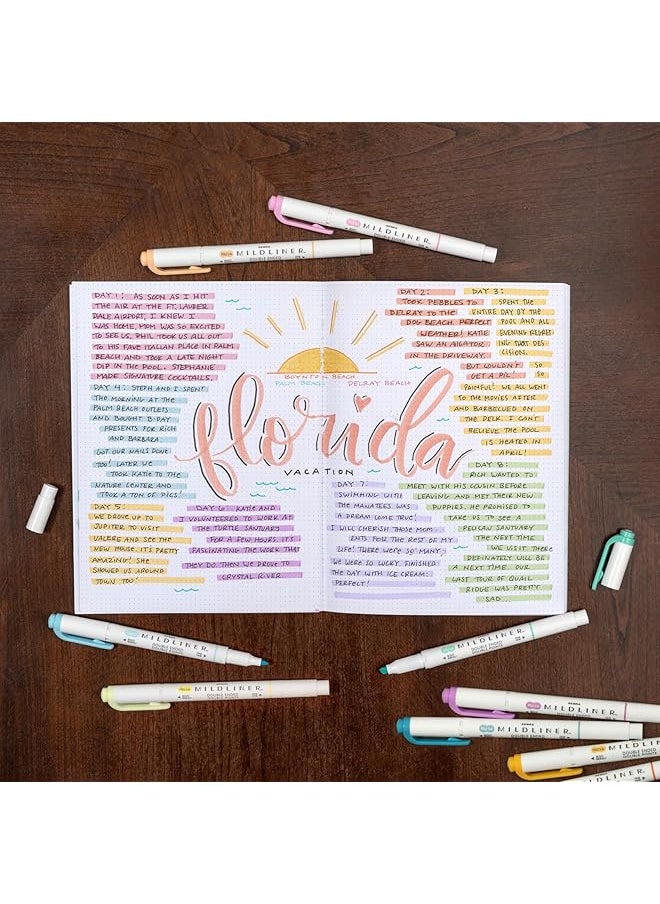 MILDLINER
DOUBLE ENDED
MILDLINER
DOUBLE ENDED
DAY 1: AS SOON AS I HIT
THE AIR AT THE FT. LAUDER
DALE AIRPORT, I KNEW I
WAS HOME. MOM WAS SO EXCITED
TO SEE US, PHIL TOOK US ALL OUT
TO HIS FAVE ITALIAN PLACE IN PALM
BEACH AND TOOK A LATE NIGHT
DIP IN THE POOL. STEPHANIE
MADE SIGNATURE COCKTAILS.
DAY 4: STEPH AND I SPENT
THE MORNING AT THE
PALM BEACH OUTLETS
AND BOUGHT B-DAY
PRESENTS FOR RICH
AND BARBARA.
GOT OUR NAILS DONE
TOO! LATER WE
TOOK KATIE TO THE
NATURE CENTER AND
TOOK A TON OF PICS!
DAY 5:
WE DROVE UP TO
JUPITER TO VISIT
VALERE AND SEE THE
NEW HOUSE. IT'S PRETTY
AMAZING! SHE
SHOWED US AROUND
TOWN TOO!
DAY 6: KATIE AND
I VOLUNTEERED TO WORK AT
THE TURTLE SANTUARY
FOR A FEW HOURS. IT'S
FASCINATING THE WORK THAT
THEY DO. THEN WE DROVE TO
CRYSTAL RIVER
BOYNTON BEACH
PALM BEACH DELRAY BEACH
florida
VACATION
DAY 2:
TOOK PEBBLES TO
DELRAY TO THE
DOG BEACH. PERFECT
WEATHER! KATIE
SAW AN ALIGATOR
IN THE DRIVEWAY.
DAY 3:
SPENT THE
ENTIRE DAY BY THE
POOL AND ALL
EVENING REGRET
ING THAT DES
CISION.
BUT COULDN'T SO
GET A PIC! SO
PAINFUL! WE ALL WENT
TO THE MOVIES AFTER
AND BARBECUED ON
THE DECK. I CAN'T
BELIEVE THE POOL
IS HEATED IN
APRIL!
DAY 7:
SWIMMING WITH
THE MANATEES WAS
A DREAM COME TRUE!
I WILL CHERISH THOSE MOM
ENTS FOR THE REST OF MY
LIFE! THERE WERE SO MANY,
WE WERE SO LUCKY. FINISHED
THE DAY WITH ICE CREAM.
PERFECT!
DAY 8:
RICH WANTED TO
MEET WITH HIS COUSIN BEFORE
LEAVING AND MET THEIR NEW
PUPPIES. HE PROMISED TO
TAKE US TO SEE A
PELICAN SANTUARY
THE NEXT TIME
WE VISIT. THERE
DEFINATELY WILL BE
A NEXT TIME. OUR
LAST TOUR OF QUAIL
RIDGE WAS PRETTY
SAD...
MILDLINER
DOUBLE ENDED
MILDLINER
DOUBLE ENDED
MILDLINER
DOUBLE ENDED
MILDLINER
DOUBLE ENDED
MILDLINER
DOUBLE ENDED
MILDLINER
DOUBLE ENDED
MILDLINER